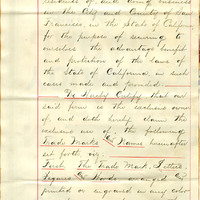 residence of, and doing business
in the City and County of San
Francisco, in the State of California
for the purpose of securing to
ourselves the advantage benefit
and protection of the laws of
the State of California in such
cases made and provided.
Do Hereby Certify that our
said firm is the exclusive owner
of, and doth hereby claim the
exclusive use of the following
Trade Marks and Names hereinafter
set forth viz:
First. The Trade Mark, Letters
Figures and Words arranged
printed or engraved in any color